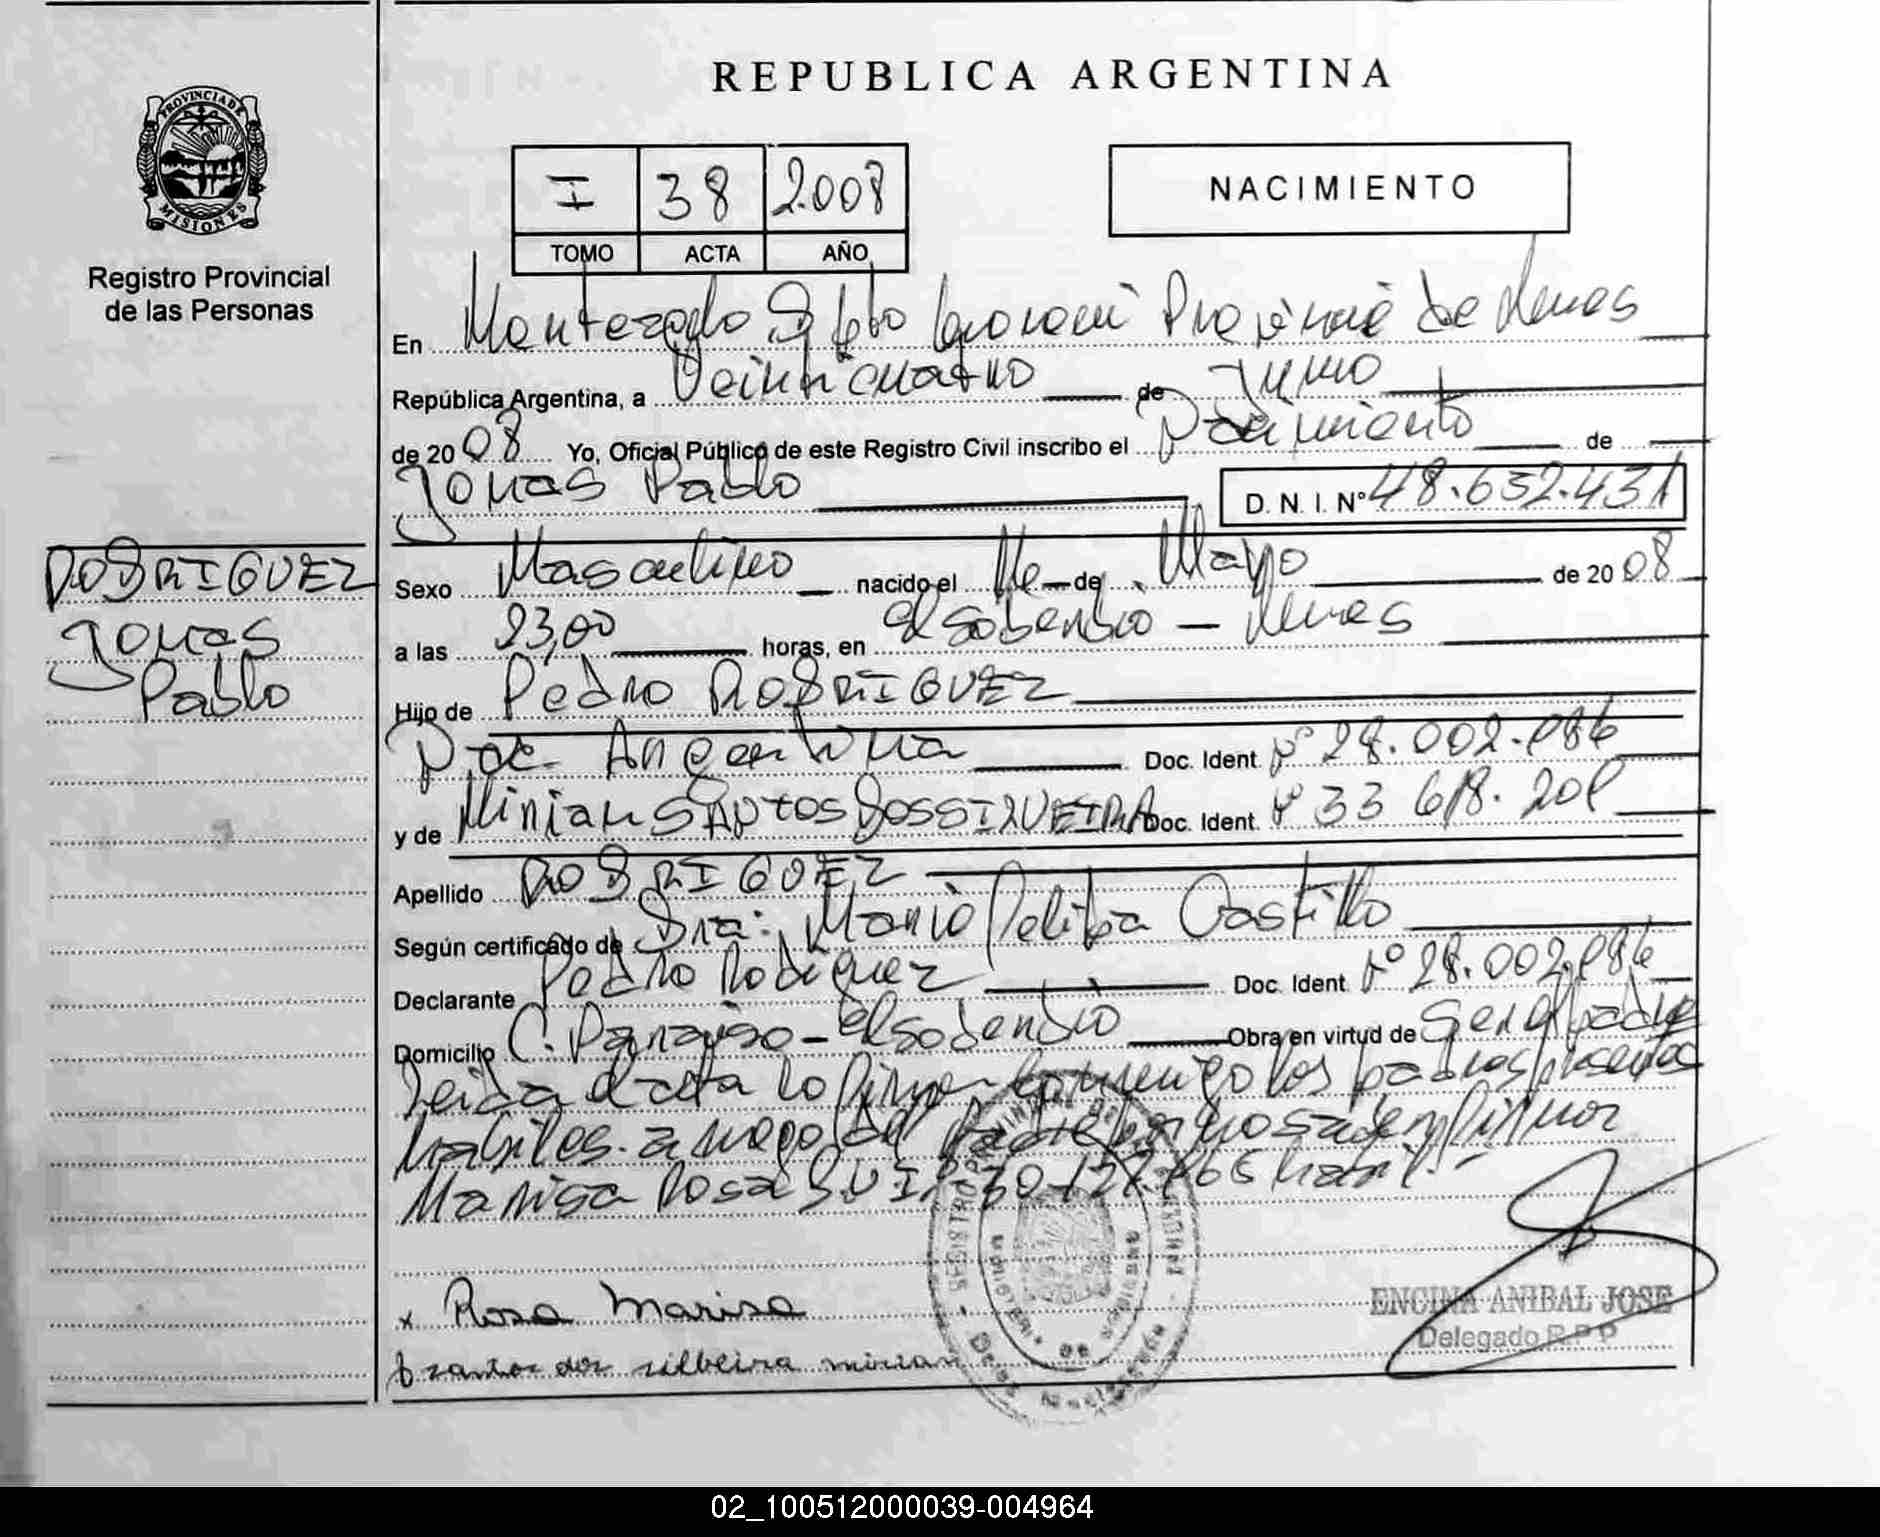 REPUBLICA ARGENTINA
PROVINCIA DE
MISIONES
Registro Provincial
de las Personas
I 38 2.008
TOMO ACTA AÑO
NACIMIENTO
En Monteagudo Dpto Guarani Provincia de Mnes
República Argentina, a Veinticuatro de Junio
de 2008 Yo, Oficial Público de este Registro Civil inscribo el Nacimiento de
Jonas Pablo D. N. I. Nº 48.632.431
RODRIGUEZ
Jonas
Pablo
Sexo Masculino nacido el de Mayo de 2008
a las 23,00 horas, en El Soberbio - Mnes
Hijo de Pedro RODRIGUEZ
Nac. Argentina Doc. Ident. Nº 28.002.
y de Miriam SANTOS Doc. Ident. Nº 33 618. 201
Apellido RODRIGUEZ
Según certificado de Dra: Castillo
Declarante Pedro Rodriguez Doc. Ident. Nº 28.002.
Domicilio C. Paraiso - El Soberbio Obra en virtud de Ser el padre
Leida el acta lo firman conmigo los padres presentes
habiles. a ruego del padre por no saber firmar
Marisa Rosa habil.-
x Rosa Marisa
santos dos silbeira mirian
ENCINA ANIBAL JOSE
Delegado R.P.P
02_100512000039-004964